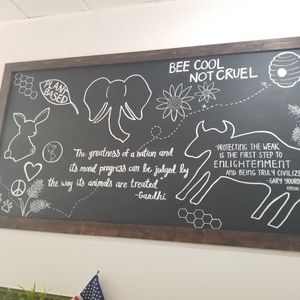 BEE COOL
NOT CRUEL
PLANT
BASED
The greatness of a nation and
its moral progress can be judged by
the way its animals are treated
-Gandhi
"PROTECTING THE WEAK
IS THE FIRST STEP TO
ENLIGHTENMENT
AND BEING TRULY CIVILIZE
-GARY YOURO